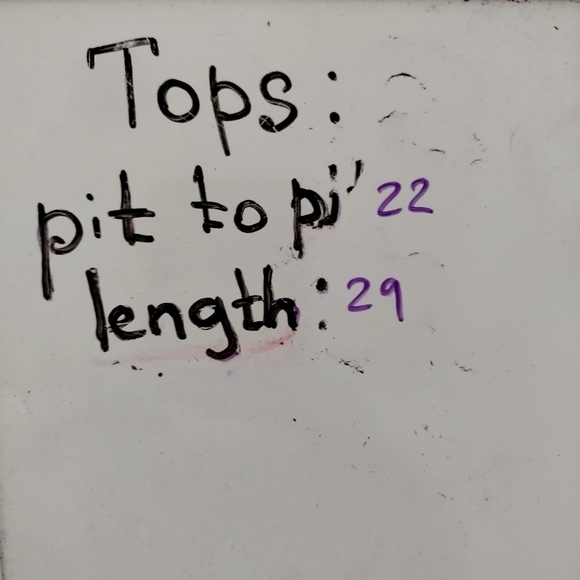 Tops:
pit to pi' 22
length: 29